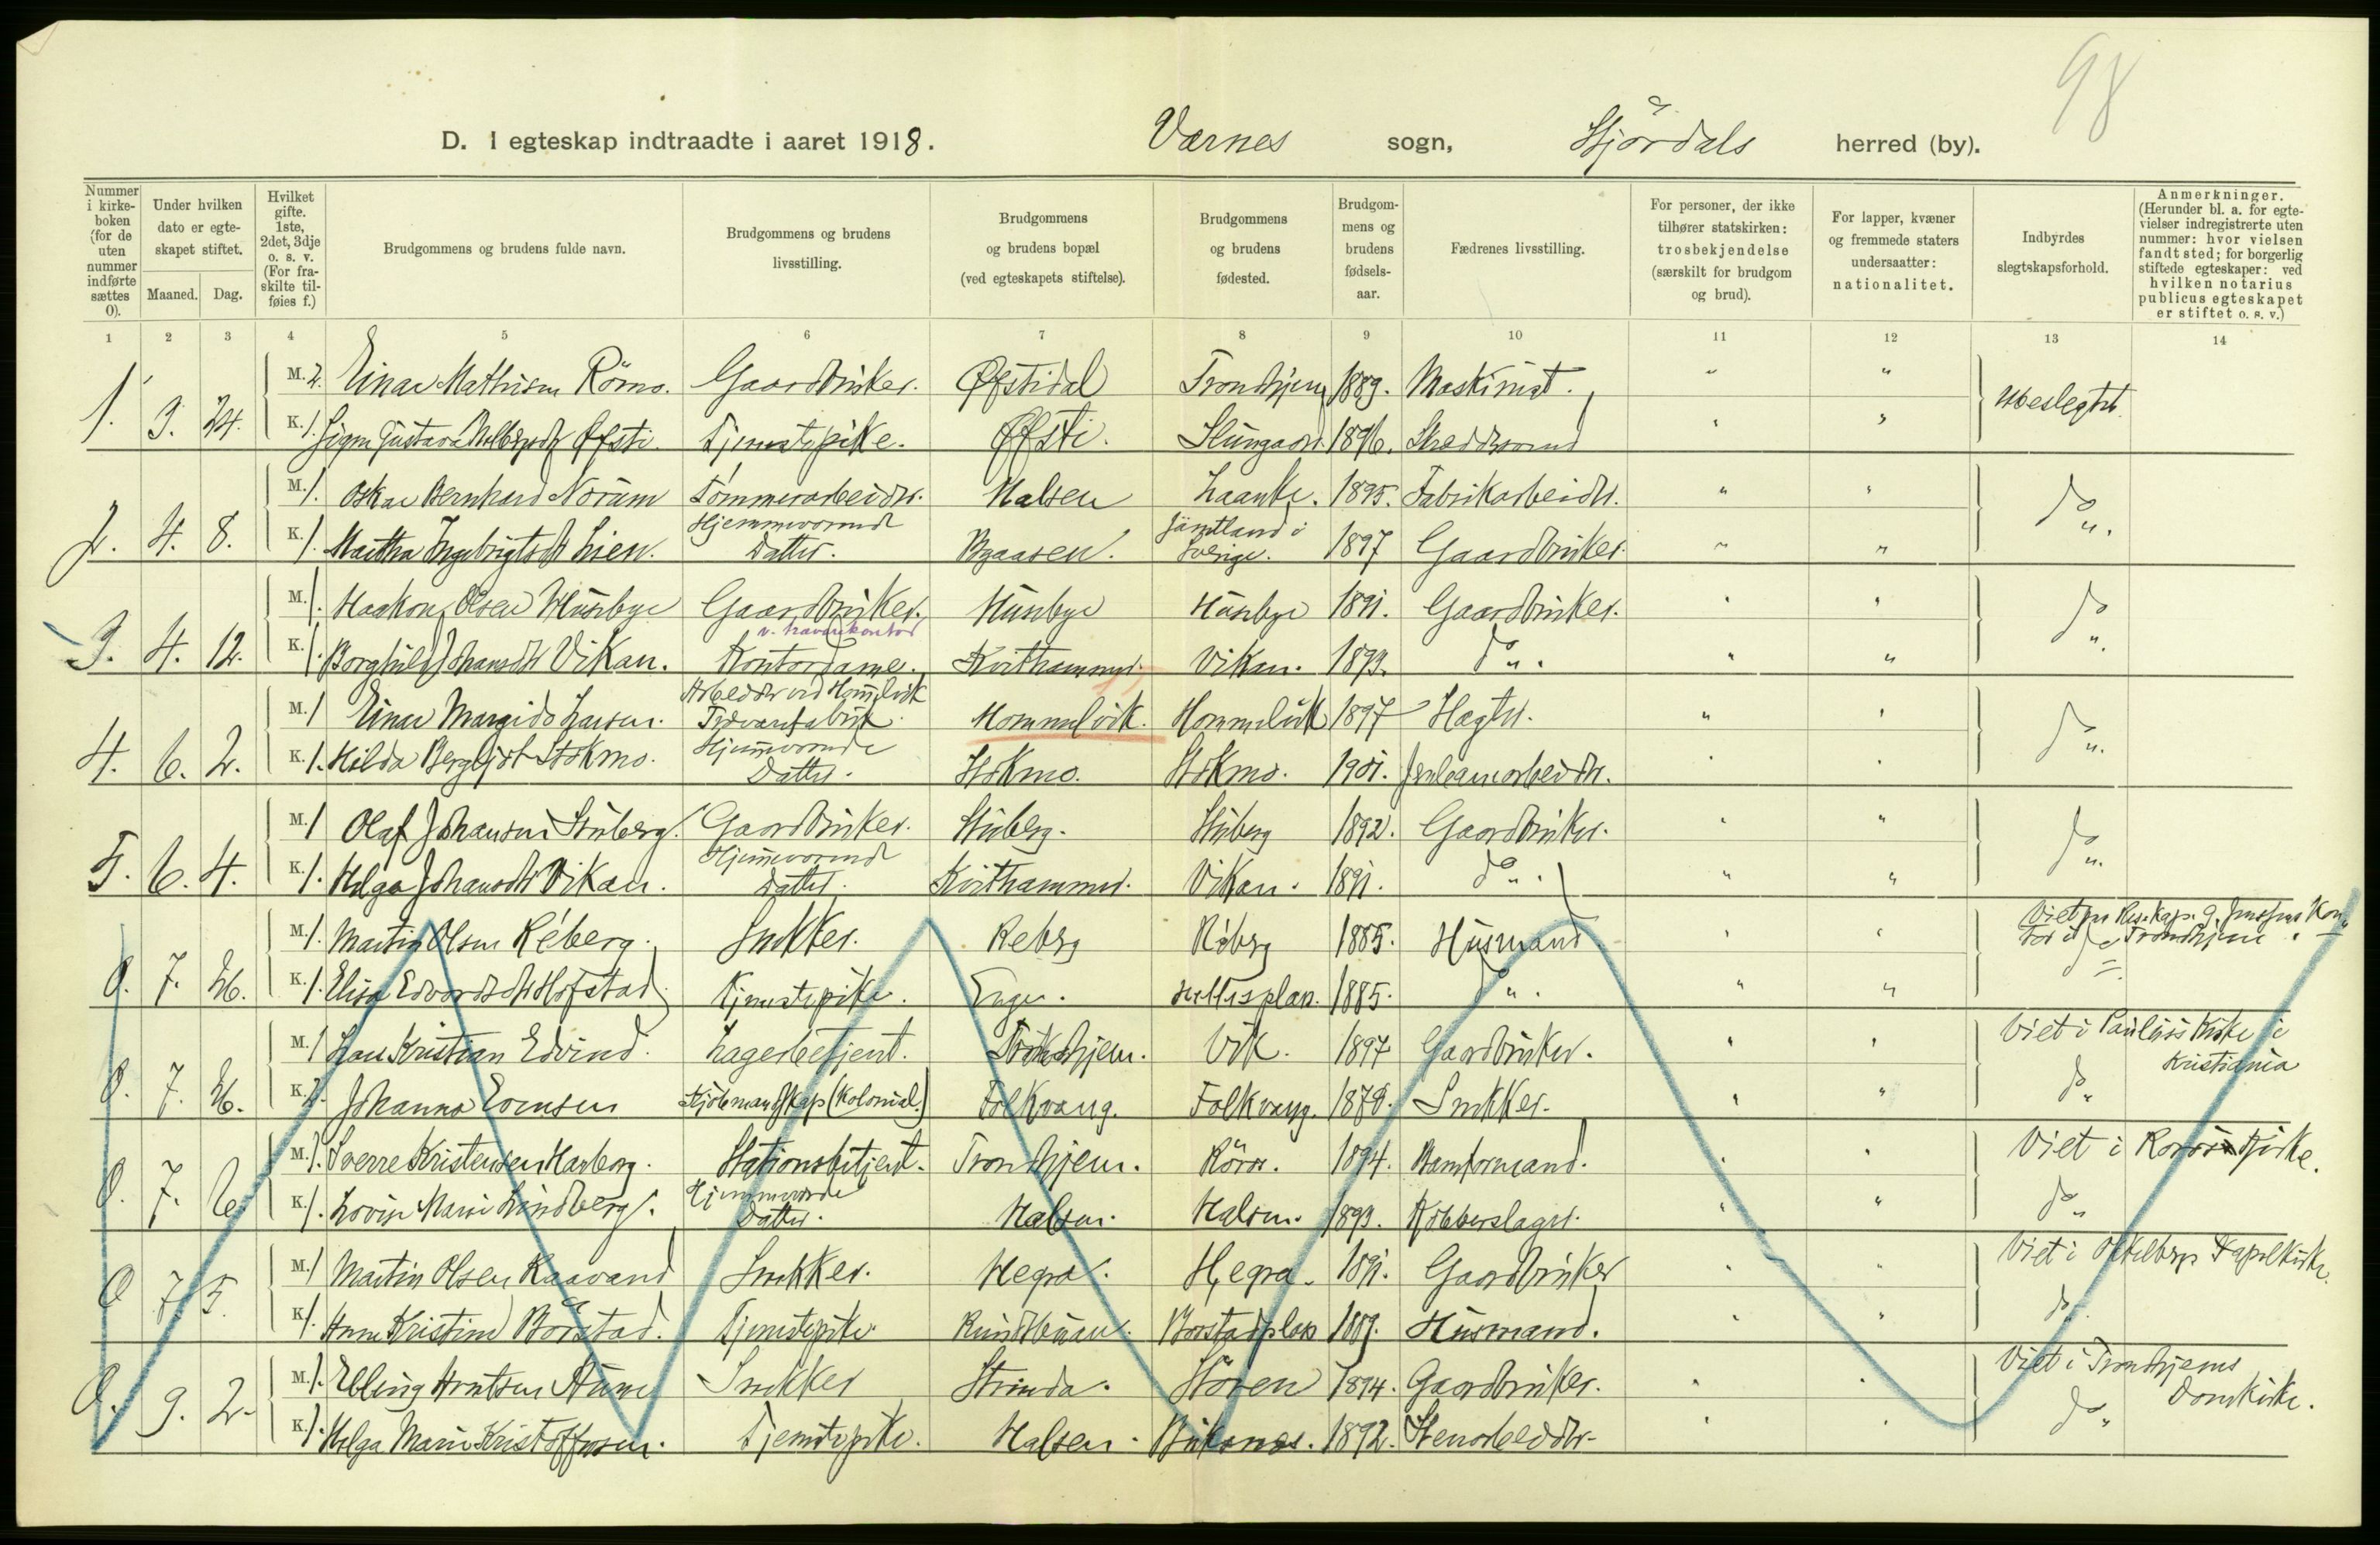 98
D. I egteskap indtraadte i aaret 1918. Værnes sogn, Stjördals herred (by).
Nummer i kirke-boken (for de uten nummer indførte sættes 0).
Under hvilken dato er egte-skapet stiftet.
Maaned. Dag.
Hvilket gifte. 1ste, 2det, 3dje o. s. v. (For fra-skilte til-føies f.)
Brudgommens og brudens fulde navn.
Brudgommens og brudens livsstilling.
Brudgommens og brudens bopæl (ved egteskapets stiftelse).
Brudgommens og brudens fødested.
Brudgom-mens og brudens fødsels-aar.
Fædrenes livsstilling.
For personer, der ikke tilhører statskirken: trosbekjendelse (særskilt for brudgom og brud).
For lapper, kvæner og fremmede staters undersaatter: nationalitet.
Indbyrdes slegtskapsforhold.
Anmerkninger. (Herunder bl. a. for egte-vielser indregistrerte uten nummer: hvor vielsen fandt sted; for borgerlig stiftede egteskaper: ved hvilken notarius publicus egteskapet er stiftet o. s. v.)
1 2 3 4 5 6 7 8 9 10 11 12 13 14
M. 2. Einar Mathisen Römo. Gaardbruker. Øfstidal Trondhjem 1889. Maskinist. " "
1. 3. 24. ubeslegtet.
K. 1. Gustava Øfsti. Tjenestepike. Øfsti. 1896. " "
M. 1. Oskar Bernhard Norum Tömmerarbeider. Halsen Laanke. 1895. Fabrikarbeider. " "
2. 4. 8. do.
K. 1. Martha Ingebrigtsdtr Lien. Hjemmeværende Datter. Byaasen. Jämtland i Sverige. 1897 Gaardbruker. " "
M. 1. Haakon Olsen Husbye Gaardbruker. Husbye Husbye 1891. Gaardbruker. " "
3. 4. 12. do.
K. 1. Borghild Johansdtr Vikan. Kontordame. Kvithammer. Vikan. 1893. do. " "
M. 1 Einar Margido Larsen. Arbeider ved Hommelvik Trævarefabrik. Hommelvik. Hommelvik 1897 " "
4. 6. 2. do.
K. 1. Hilda Bergljot Stokmo. Hjemmeværende Datter. Stokmo. Stokmo. 1901. " "
M. 1 Olaf Johansen Stuberg. Gaardbruker. Stuberg. Stuberg 1892. Gaardbruker. " "
5. 6. 4. do.
K. 1. Helga Johansdtr Vikan. Hjemmeværende Datter. Kvithammer. Vikan. 1891. do. " "
M. 1. Martin Olsen Réberg. Snekker. Reberg Réberg 1885. Husmand. " " Viet
0. 7. 26. Trondhjem.
K. 1. Elisa Edvardsdtr Hofstad. Tjenestepike. 1885. do. " "
M. 1 Kristian Edvind. Lagerbetjent. Trondhjem. Vik. 1897 Gaardbruker. " " Viet i Paulus Kirke i Kristiania
0. 7. 26. do.
K. 2. Johanna Evensen (Kolonial.) Folkvang. Folkvang. 1878. Snekker. " "
M. 1. Sverre Kristensen Harborg. Stationsbetjent. Trondhjem. Röros. 1894. Banformand. " " Viet i Röros Kirke.
0. 7. 6 do.
K. 1. Lovise Marie Lindberg. Hjemmeværende Datter. Halsen. Halsen. 1893. Kobberslager. " "
M. 1 Martin Olsen Raavand Snekker. Hegra. Hegra. 1891. Gaardbruker " " Viet i Kapelkirke.
0 7. 5. do.
K. 1. Anne Kristine Börstad. Tjenestepike. Borstadplas 1889. Husmand. " "
M. 1. Elling Arntsen Aune Snekker Strinda. Stören 1894. Gaardbruker. " " Viet i Trondhjems Domkirke.
0. 9. 2. do.
K. 1. Helga Marie Kristoffersen. Tjenestepike. Halsen. 1892. Stenarbeider. " "